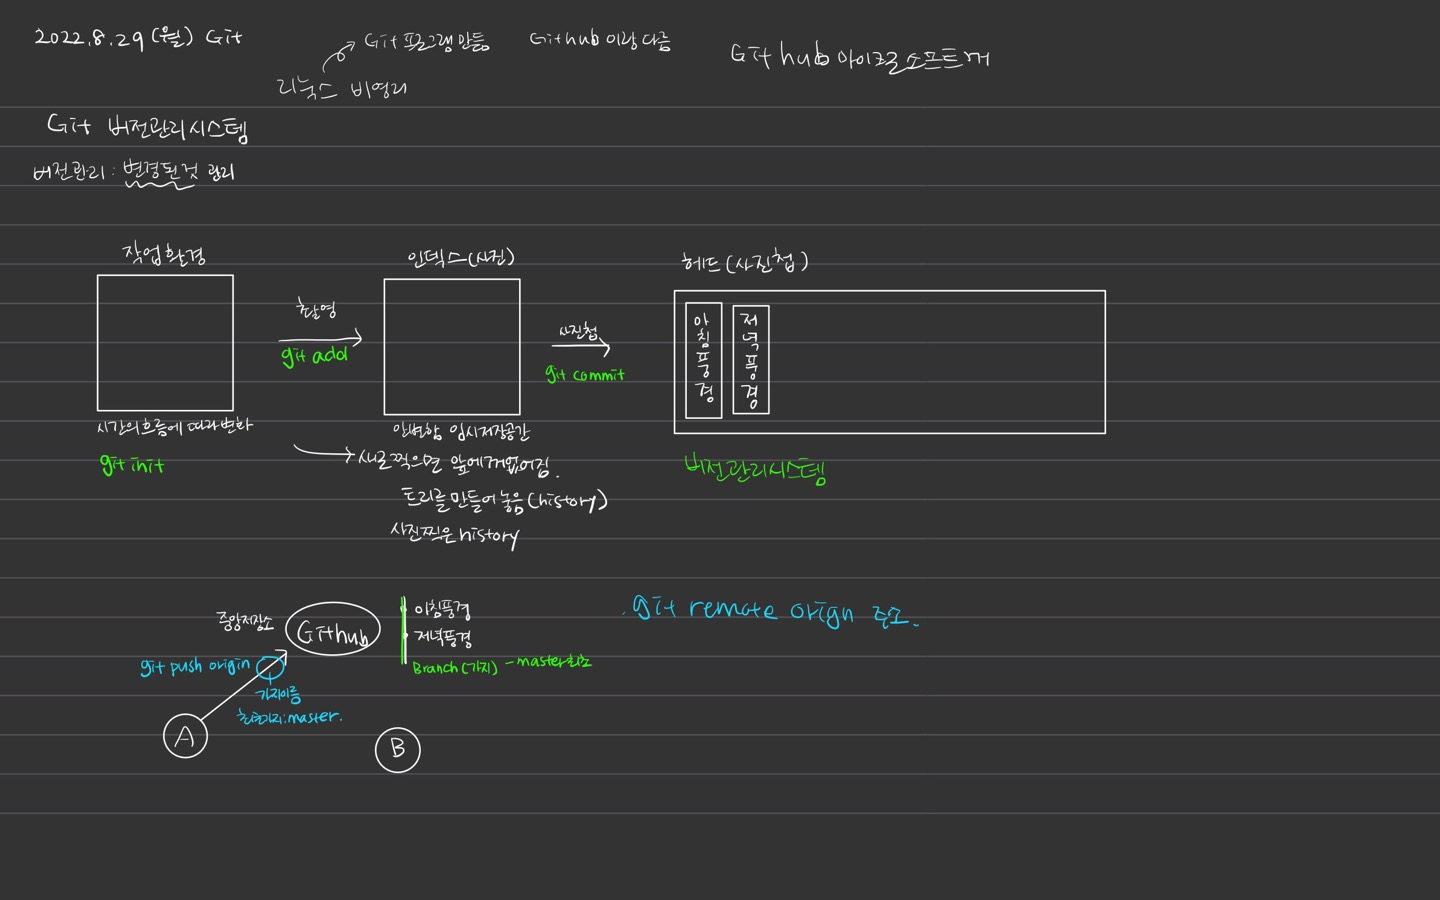 2022.8.29(월) Git
Git 프로그램 만듬
Github 이랑 다름
Github 마이크로소프트꺼
리눅스 비영리
Git 버전관리시스템
버전관리 : 변경된것 관리
작업환경
인덱스(사진)
헤드(사진첩)
촬영
git add
사진첩
git commit
아침풍경
저녁풍경
시간의흐름에 따라변화
git init
안변함 임시저장공간
새로찍으면 앞에꺼없어짐.
트리를 만들어 놓음(history)
사진찍은history
버전관리시스템
중앙저장소
Github
아침풍경
저녁풍경
Branch(가지) - master최초
git push origin
가지이름
최초가지:master.
A
B
.git remote orign 주소.